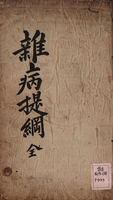 雜病提綱 全